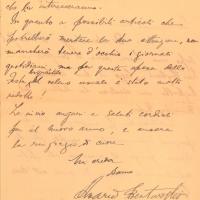 che più interessano.
In quanto a possibili articoli che
potrebbero meritare la sua attenzione, non
mancherò tenere d'occhio i giornali
quotidiani, ma per questa opera dello
usuale è stato molto
ridotto!
Le invio auguri e saluti cordiali
per il nuovo anno, e ancora
la ringrazio di cuore.
Mi creda
Suo